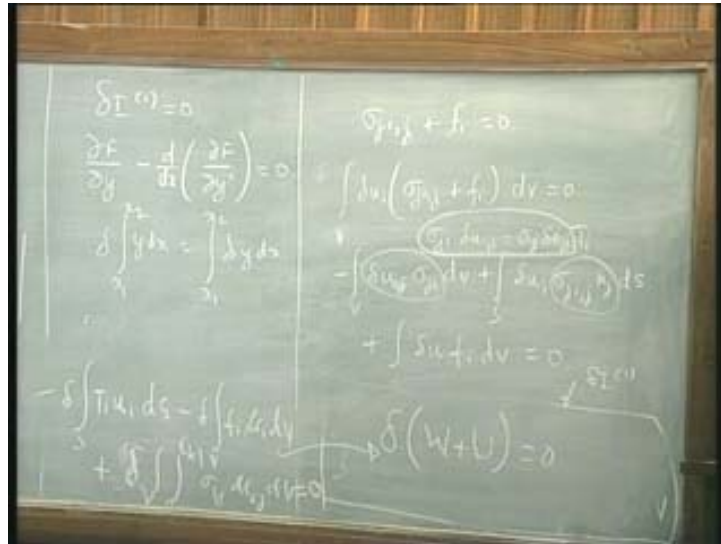 δI⁽¹⁾ = 0
∂F/∂y − d/dx (∂F/∂y') = 0
δ ∫_{x1}^{x2} y dx = ∫_{x1}^{x2} δy dx
− δ ∫_S T_i u_i ds − δ ∫ f_i u_i dv
+ δ ∫_V ∫ σ_{ij} dε_{ij} dv = 0
σ_{ji,j} + f_i = 0
∫_V δu_i (σ_{ji,j} + f_i) dv = 0
σ_{ji} δu_{i,j} = σ_{ij} δε_{ij} T_i
− ∫_V δu_{i,j} σ_{ji} dv + ∫_S δu_i σ_{ji} n_j ds
+ ∫ δu_i f_i dv = 0
δI⁽¹⁾
δ(W+U) = 0